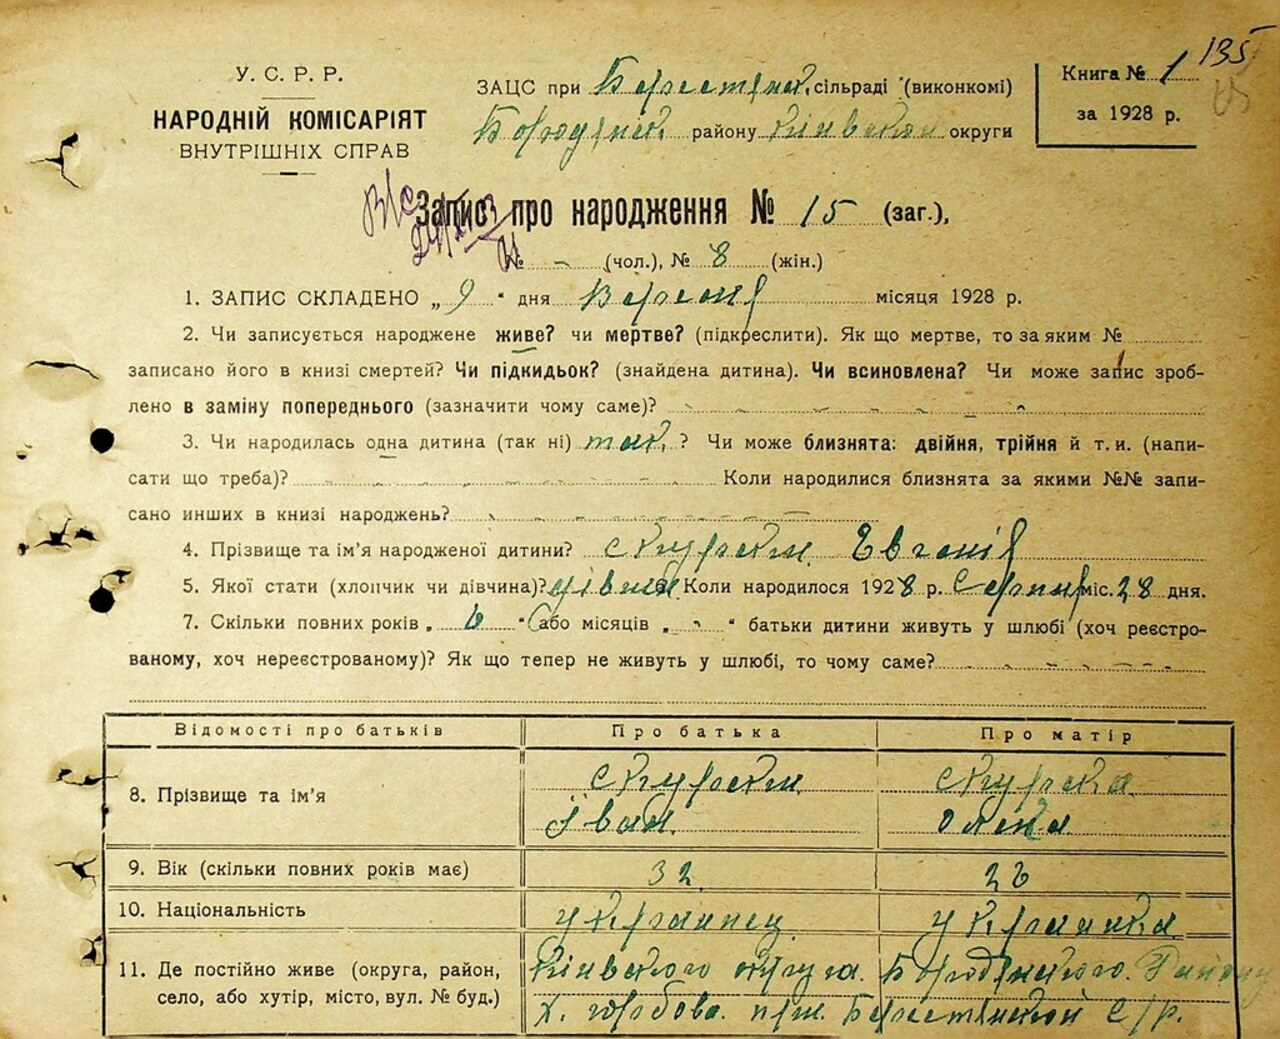 135
У. С. Р. Р.
НАРОДНІЙ КОМІСАРІЯТ
ВНУТРІШНІХ СПРАВ
ЗАЦС при Берестян. сільраді (виконкомі)
Бородянск району Київскои округи
Книга № 1
за 1928 р.
Запис про народження № 15 (заг.),
№ - (чол.), № 8 (жін.)
1. ЗАПИС СКЛАДЕНО „ 9 " дня Вересня місяця 1928 р.
2. Чи записується народжене живе? чи мертве? (підкреслити). Як що мертве, то за яким №
записано його в книзі смертей? Чи підкидьок? (знайдена дитина). Чи всиновлена? Чи може запис зроб-
лено в заміну попереднього (зазначити чому саме)?
3. Чи народилась одна дитина (так ні) так. ? Чи може близнята: двійня, трійня й т. и. (напи-
сати що треба)? Коли народилися близнята за якими №№ запи-
сано инших в книзі народжень?
4. Прізвище та ім'я народженої дитини? Скурски Евгенія
5. Якої стати (хлопчик чи дівчина)? дівчин 6. Коли народилося 1928 р. Серпня міс. 28 дня.
7. Скільки повних років „ 6 " (або місяців „ - " батьки дитини живуть у шлюбі (хоч реєстро-
ваному, хоч нереєстрованому)? Як що тепер не живуть у шлюбі, то чому саме?
Відомості про батьків Про батька Про матір
8. Прізвище та ім'я Скурски Іван. Скурска Олена
9. Вік (скільки повних років має) 32 26
10. Національність украинец украинка
11. Де постійно живе (округа, район, Киівского округа. Бородянского. Району
село, або хутір, місто, вул. № буд.) х. горбова. Берестянской С/р.